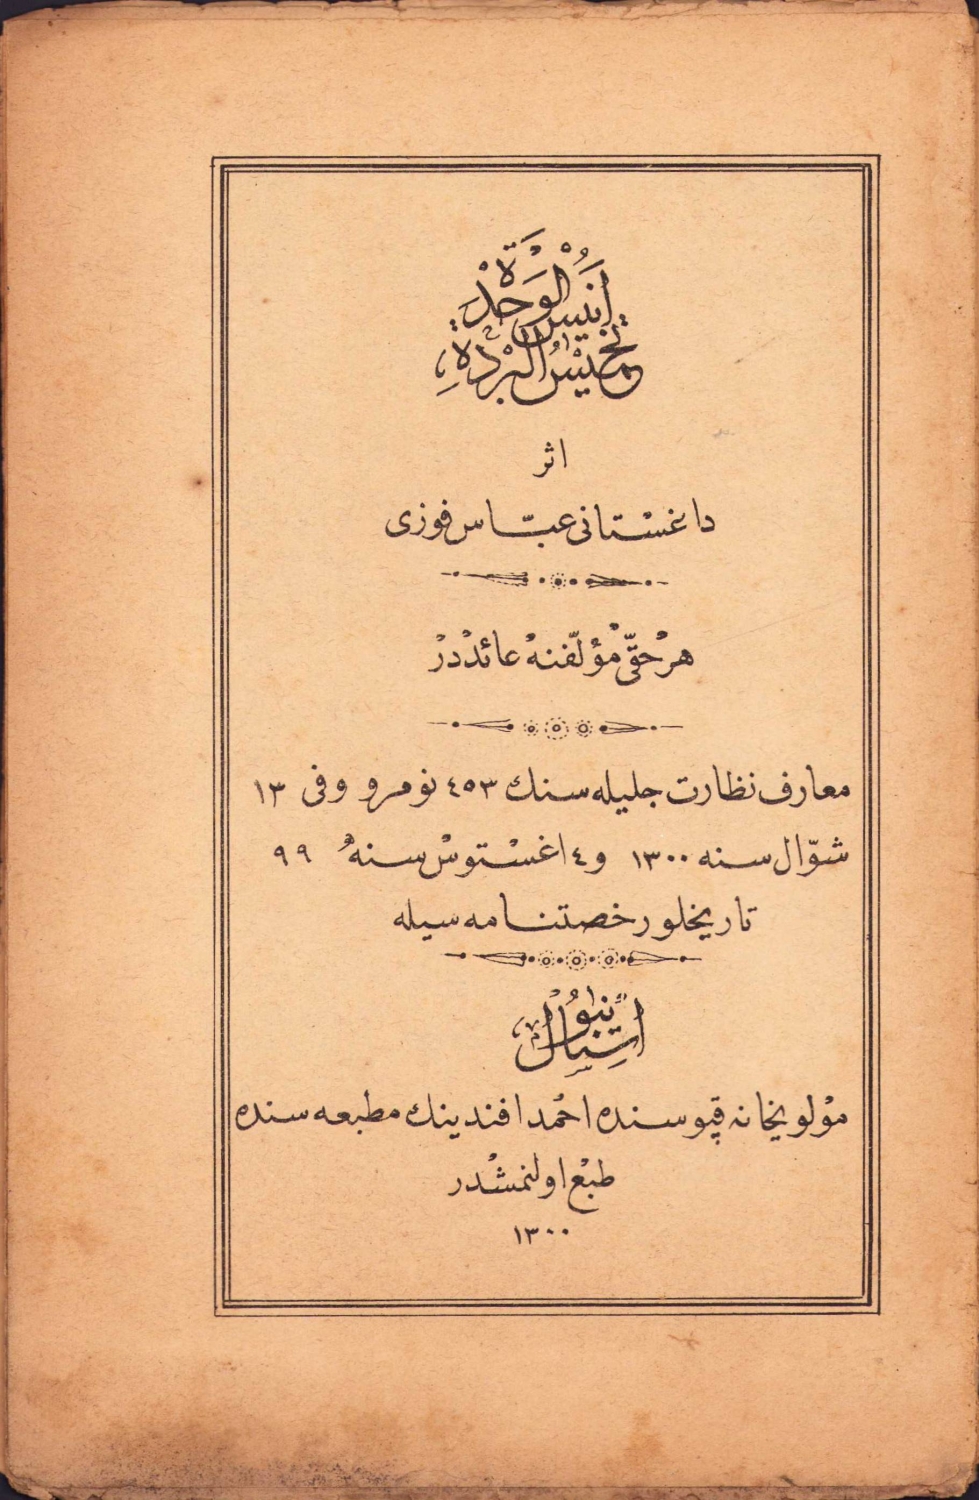 اَنيسُ الْوَحْدَة
تخميسُ الْبُرْدَةِ
اثر
داغستانى عبّاس فوزى
هر حقّى مؤلّفنه عائددر
معارف نظارت جليله سنك ٤٥٣ نومرو وفى ١٣
شوّال سنه ١٣٠٠ و ٤ اغستوس سنه ٩٩
تاريخلو رخصتنامه سيله
استانبول
مولويخانه قپوسنده احمد افندينك مطبعه سنده
طبع اولنمشدر
١٣٠٠